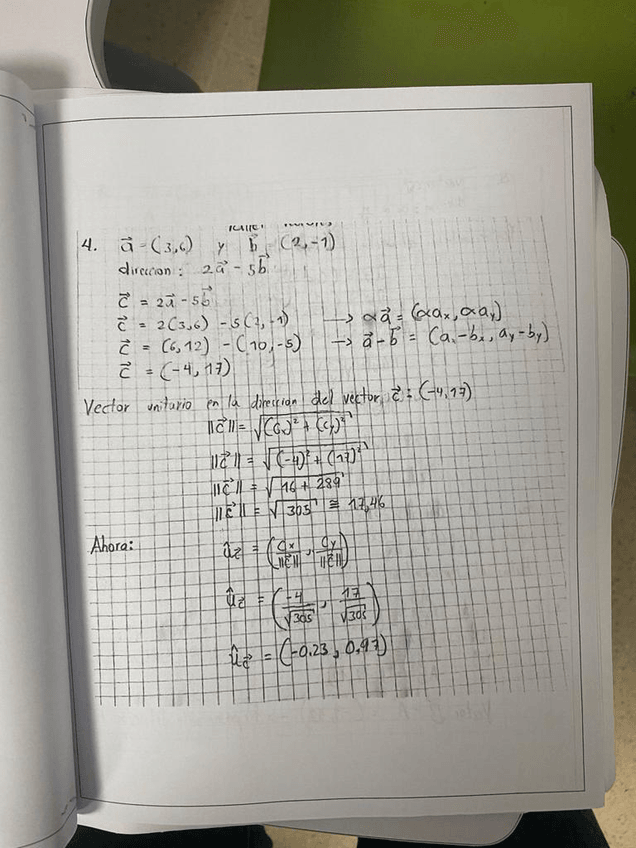 4. a⃗ = (3,6) y b⃗ (2,-1)
direccion: 2a⃗ - 5b⃗
c⃗ = 2a⃗ - 5b⃗
c⃗ = 2(3,6) - 5(2,-1) → αa⃗ = (αaₓ, αaᵧ)
c⃗ = (6,12) - (10,-5) → a⃗-b⃗ = (aₓ-bₓ, aᵧ-bᵧ)
c⃗ = (-4,17)
Vector unitario en la direccion del vector c⃗ = (-4,17)
||c⃗|| = √((Cₓ)² + (Cᵧ)²)
||c⃗|| = √((-4)² + (17)²)
||c⃗|| = √(16 + 289)
||c⃗|| = √305 ≅ 17,46
Ahora: û_c⃗ = (Cₓ/||c⃗||, Cᵧ/||c⃗||)
û_c⃗ = (-4/√305, 17/√305)
û_c⃗ = (-0.23, 0,97)